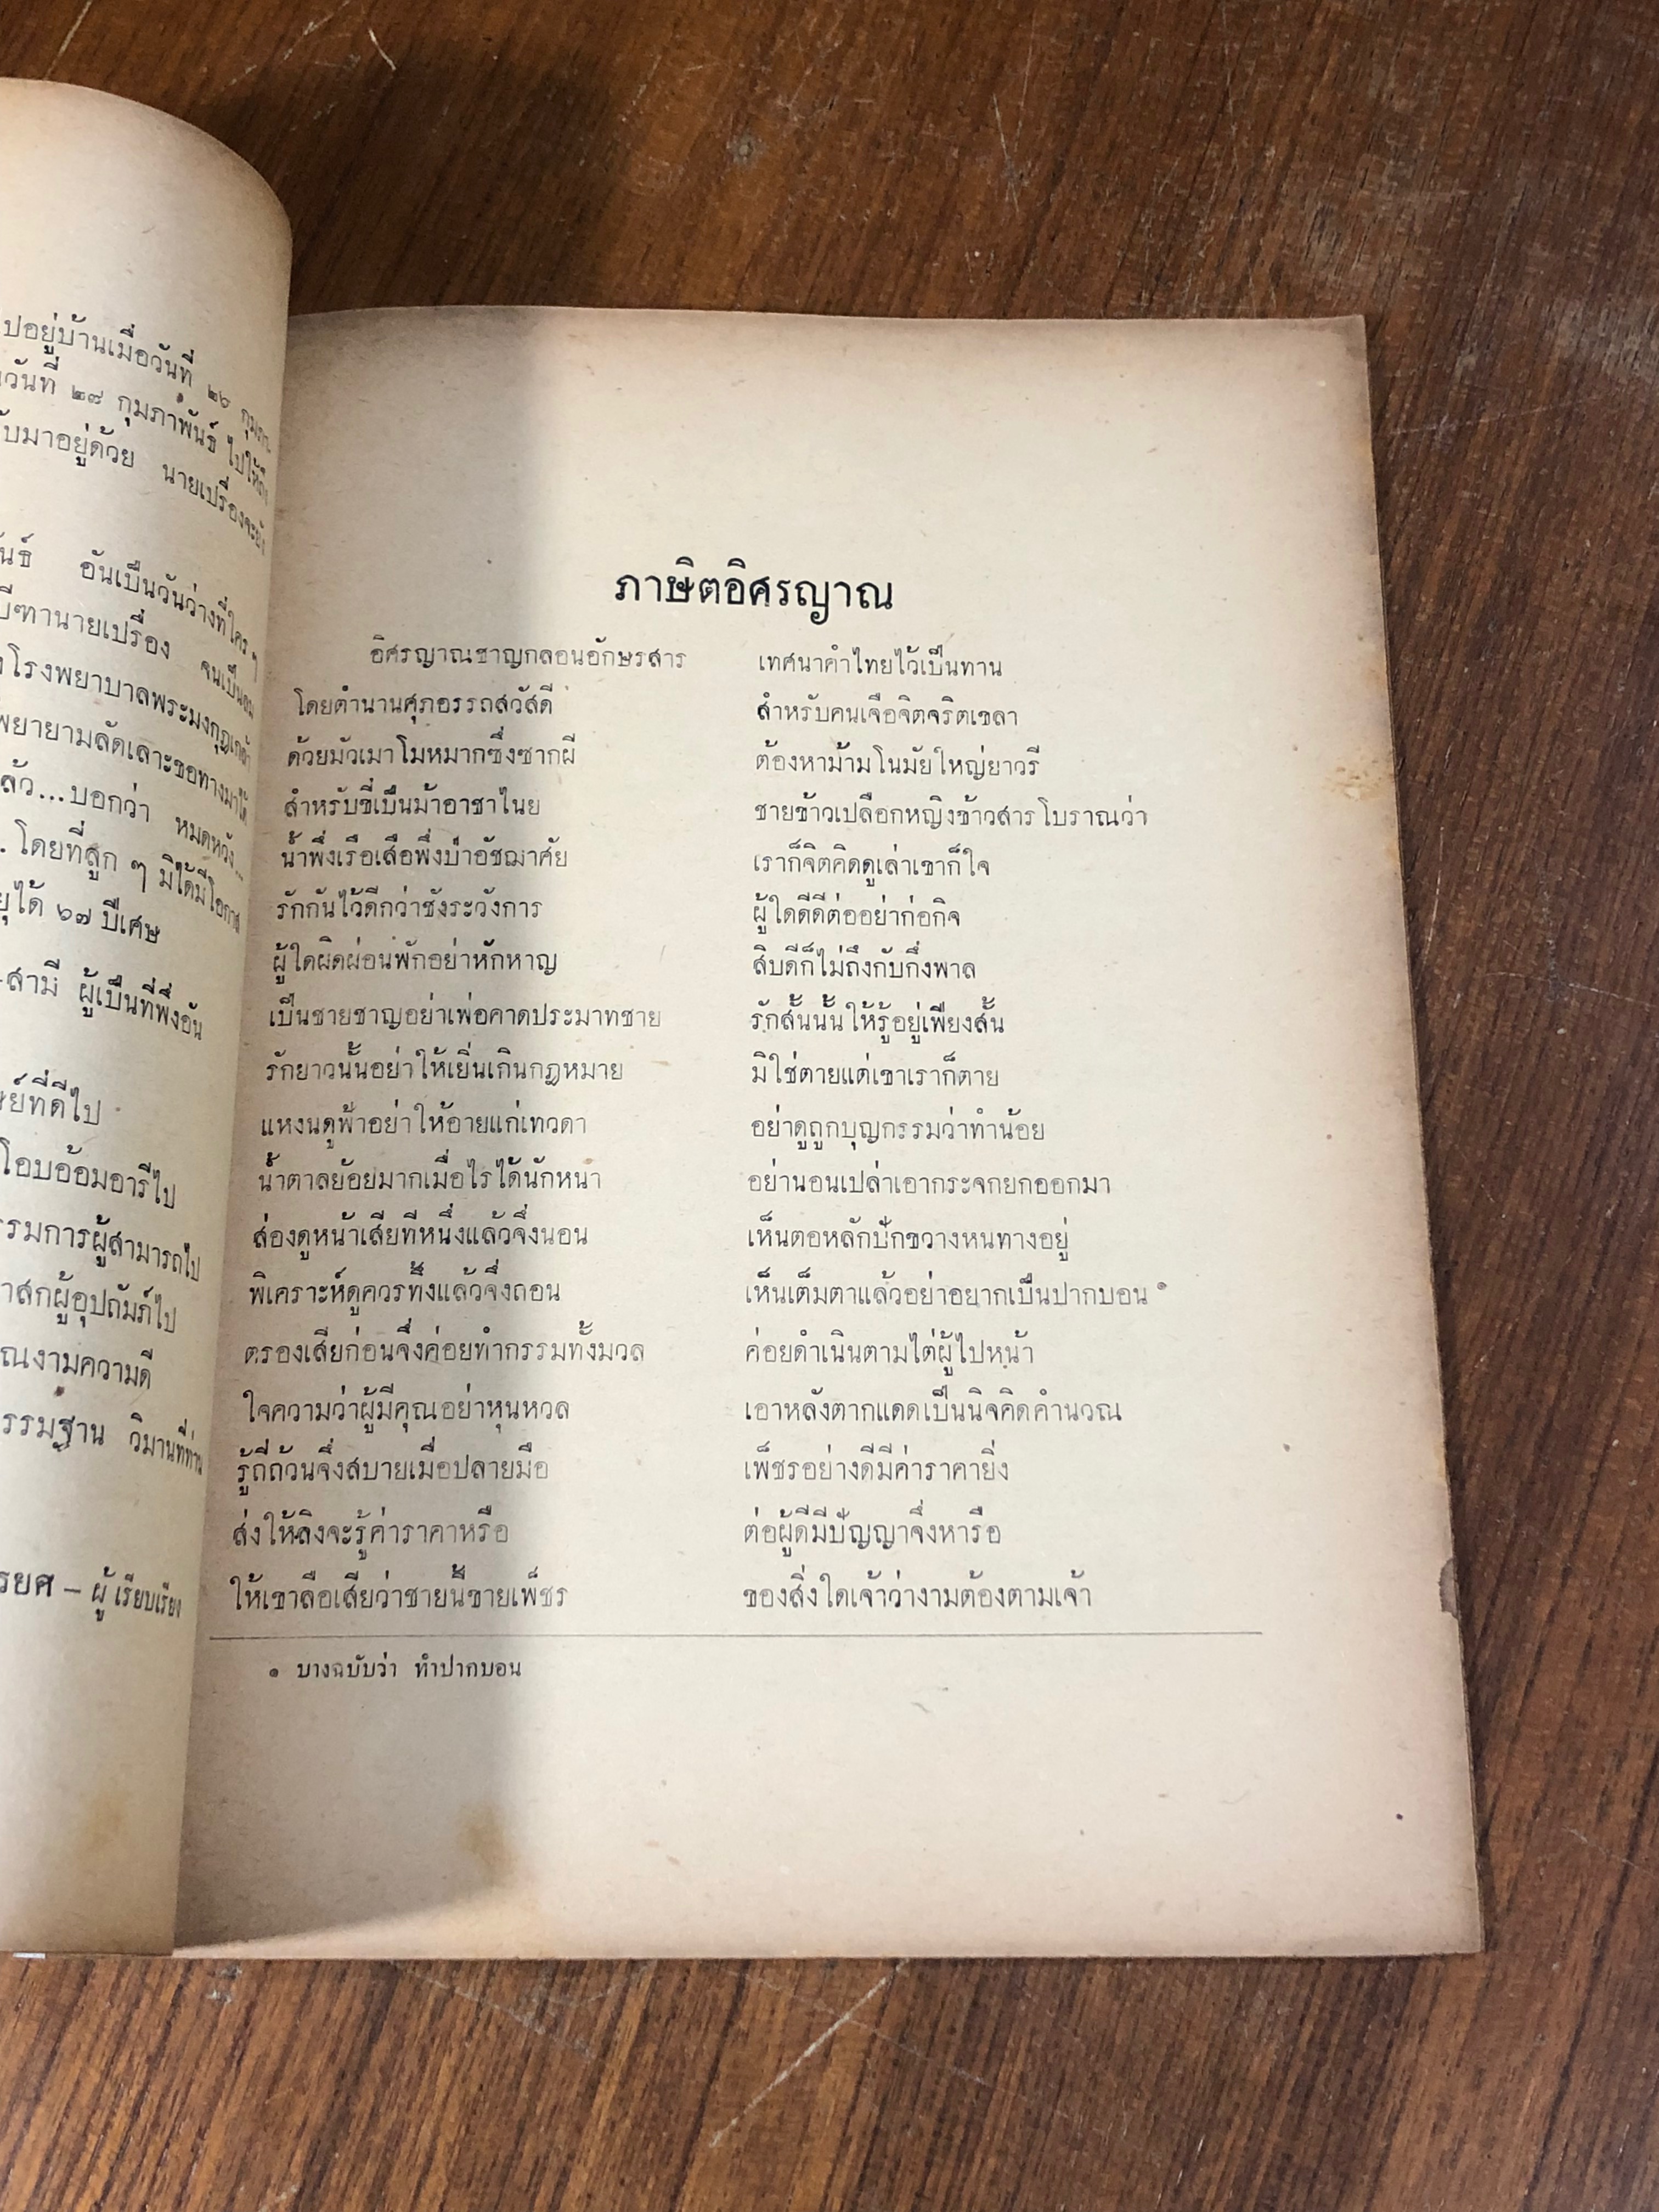 ปอยู่บ้านเมื่อวันที่ ๒๖
วันที่ ๒๗ กุมภาพันธ์ ไปให้ถึง
บมาอยู่ด้วย นายเปรื่องจะยัง
อันเป็นวันว่างที่ใคร ๆ
นายเปรื่อง จนเป็นลม
โรงพยาบาลพระมงกุฎเกล้า
พยายามลัดเลาะขอทางมาได้
ล้ว...บอกว่า หมดหวัง...
. โดยที่ลูก ๆ มิได้มีโอกาส
ยุได้ ๖๗ ปีเศษ
สามี ผู้เป็นที่พึ่งอัน
ที่ดีไป
โอบอ้อมอารีไป
รรมการผู้สามารถไป
าสกผู้อุปถัมภ์ไป
ณงามความดี
รรมฐาน วิมานที่ท่าน
รยศ – ผู้เรียบเรียง
ภาษิตอิศรญาณ
อิศรญาณชาญกลอนอักษรสาร เทศนาคำไทยไว้เป็นทาน
โดยตำนานศุภอรรถสวัสดี สำหรับคนเจือจิตจริตเขลา
ด้วยมัวเมาโมหมากซึ่งซากผี ต้องหาม้ามโนมัยใหญ่ยาวรี
สำหรับขี่เป็นม้าอาชาไนย ชายข้าวเปลือกหญิงข้าวสารโบราณว่า
น้ำพึ่งเรือเสือพึ่งป่าอัชฌาศัย เราก็จิตคิดดูเล่าเขาก็ใจ
รักกันไว้ดีกว่าชังระวังการ ผู้ใดดีดีต่ออย่าก่อกิจ
ผู้ใดผิดผ่อนพักอย่าหักหาญ สิบดีก็ไม่ถึงกับกึ่งพาล
เป็นชายชาญอย่าเพ่อคาดประมาทชาย รักสั้นนั้นให้รู้อยู่เพียงสั้น
รักยาวนั้นอย่าให้เยิ่นเกินกฎหมาย มิใช่ตายแต่เขาเราก็ตาย
แหงนดูฟ้าอย่าให้อายแก่เทวดา อย่าดูถูกบุญกรรมว่าทำน้อย
น้ำตาลย้อยมากเมื่อไรได้นักหนา อย่านอนเปล่าเอากระจกยกออกมา
ส่องดูหน้าเสียทีหนึ่งแล้วจึ่งนอน เห็นตอหลักปักขวางหนทางอยู่
พิเคราะห์ดูควรทึ้งแล้วจึ่งถอน เห็นเต็มตาแล้วอย่าอยากเป็นปากบอน ๑
ตรองเสียก่อนจึ่งค่อยทำกรรมทั้งมวล ค่อยดำเนินตามไต่ผู้ไปหน้า
ใจความว่าผู้มีคุณอย่าหุนหวล เอาหลังตากแดดเป็นนิจคิดคำนวณ
รู้ถี่ถ้วนจึ่งสบายเมื่อปลายมือ เพ็ชรอย่างดีมีค่าราคายิ่ง
ส่งให้ลิงจะรู้ค่าราคาหรือ ต่อผู้ดีมีปัญญาจึ่งหารือ
ให้เขาลือเสียว่าชายนี้ขายเพ็ชร ของสิ่งใดเจ้าว่างามต้องตามเจ้า
๑ บางฉบับว่า ทำปากบอน